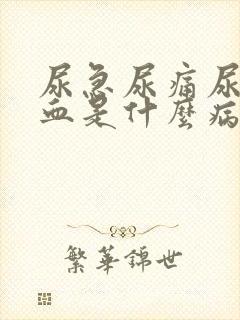 尿急尿痛尿
血是什麼病
繁華錦世